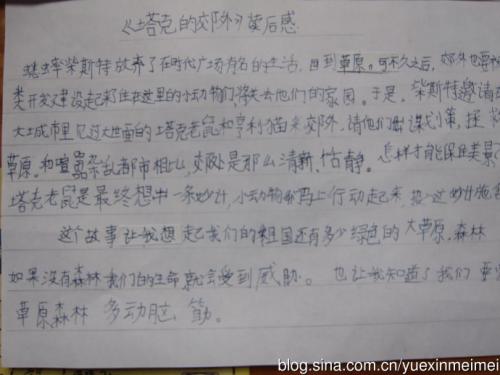 《塔克的郊外》读后感
蟋蟀柴斯特放弃了在时代广场有名的生活,回到草原。可不久之后,郊外也要
类开发建设起来住在这里的小动物们将失去他们的家园。于是,柴斯特邀请
大城市里见过大世面的塔克老鼠和亨利猫来郊外,请他们出谋划策,拯
草原。和喧嚣杂乱都市相比,郊外是那么清新、恬静。怎样才能保住美景
塔克老鼠是最终想出一条妙计,小动物们马上行动起来,按这妙计
这个故事让我想起我们的祖国还有多少绿色的大草原、森林
如果没有森林我们的生命就会受到威胁。也让我知道了我们要
草原森林 多动脑筋。
blog.sina.com.cn/yuexinmeimei